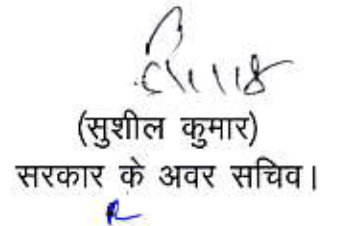 (सुशील कुमार)
सरकार के अवर सचिव।